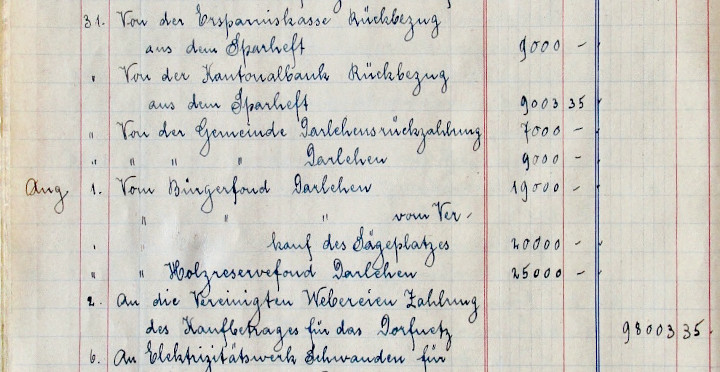 31. Von der Ersparniskasse Rückbezug
aus dem Sparheft 9000 –
" Von der Kantonalbank Rückbezug
aus dem Sparheft 9003 35
" Von der Gemeinde Darlehensrückzahlung 7000 –
" " " " Darlehen 9000 –
Aug. 1. Vom Bürgerfond Darlehen 19000 –
" " " vom Ver-
" kauf des Sägeplatzes 20000 –
" " Holzreservefond Darlehen 25000 –
2. An die Vereinigten Webereien Zahlung
des Kaufbetrages für das Dorfnetz 98003 35
6. An Elektrizitätswerk Schwanden für